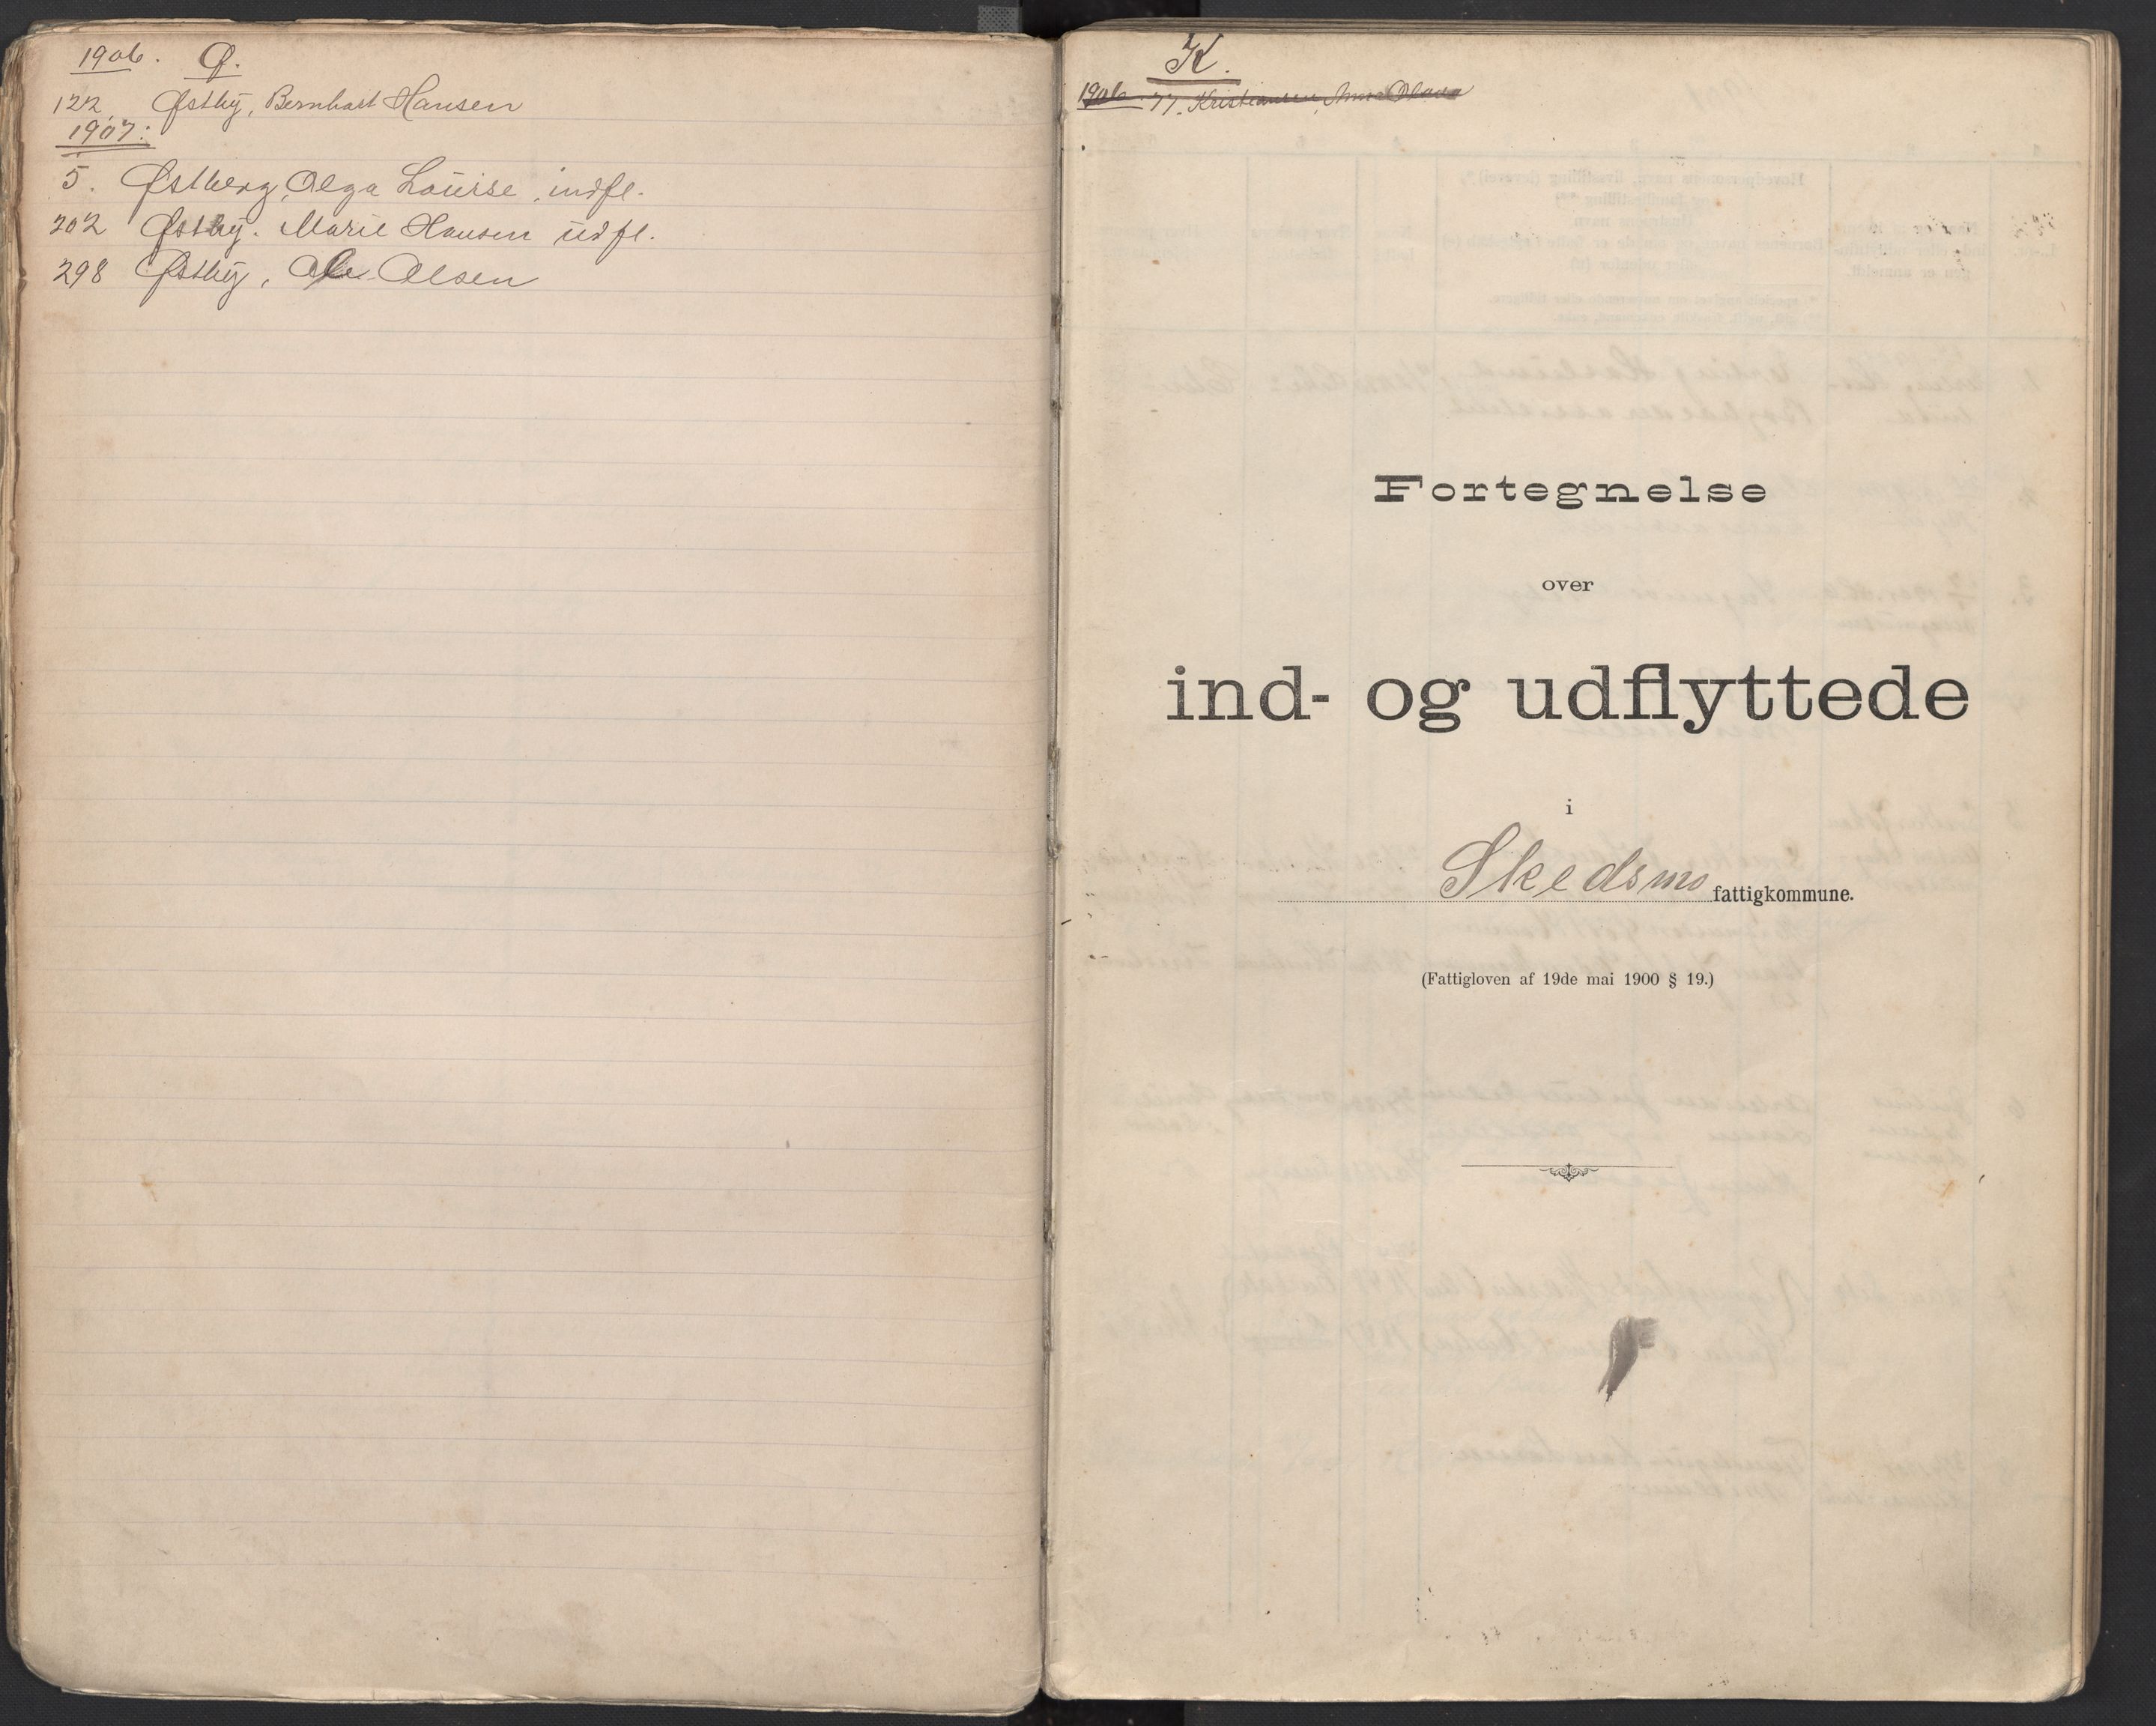 1906. Ø.
122 Østby, Bernhart Hansen
1907:
5. Østberg, Olga Louise, indfl.
202 Østby. Marie Hansen udfl.
298 Østby, Ole Olsen
K.
1906. 77. Kristiansen, Anna Olava
Fortegnelse
over
ind- og udflyttede
i
Skedsmo fattigkommune.
(Fattigloven af 19de mai 1900 § 19.)